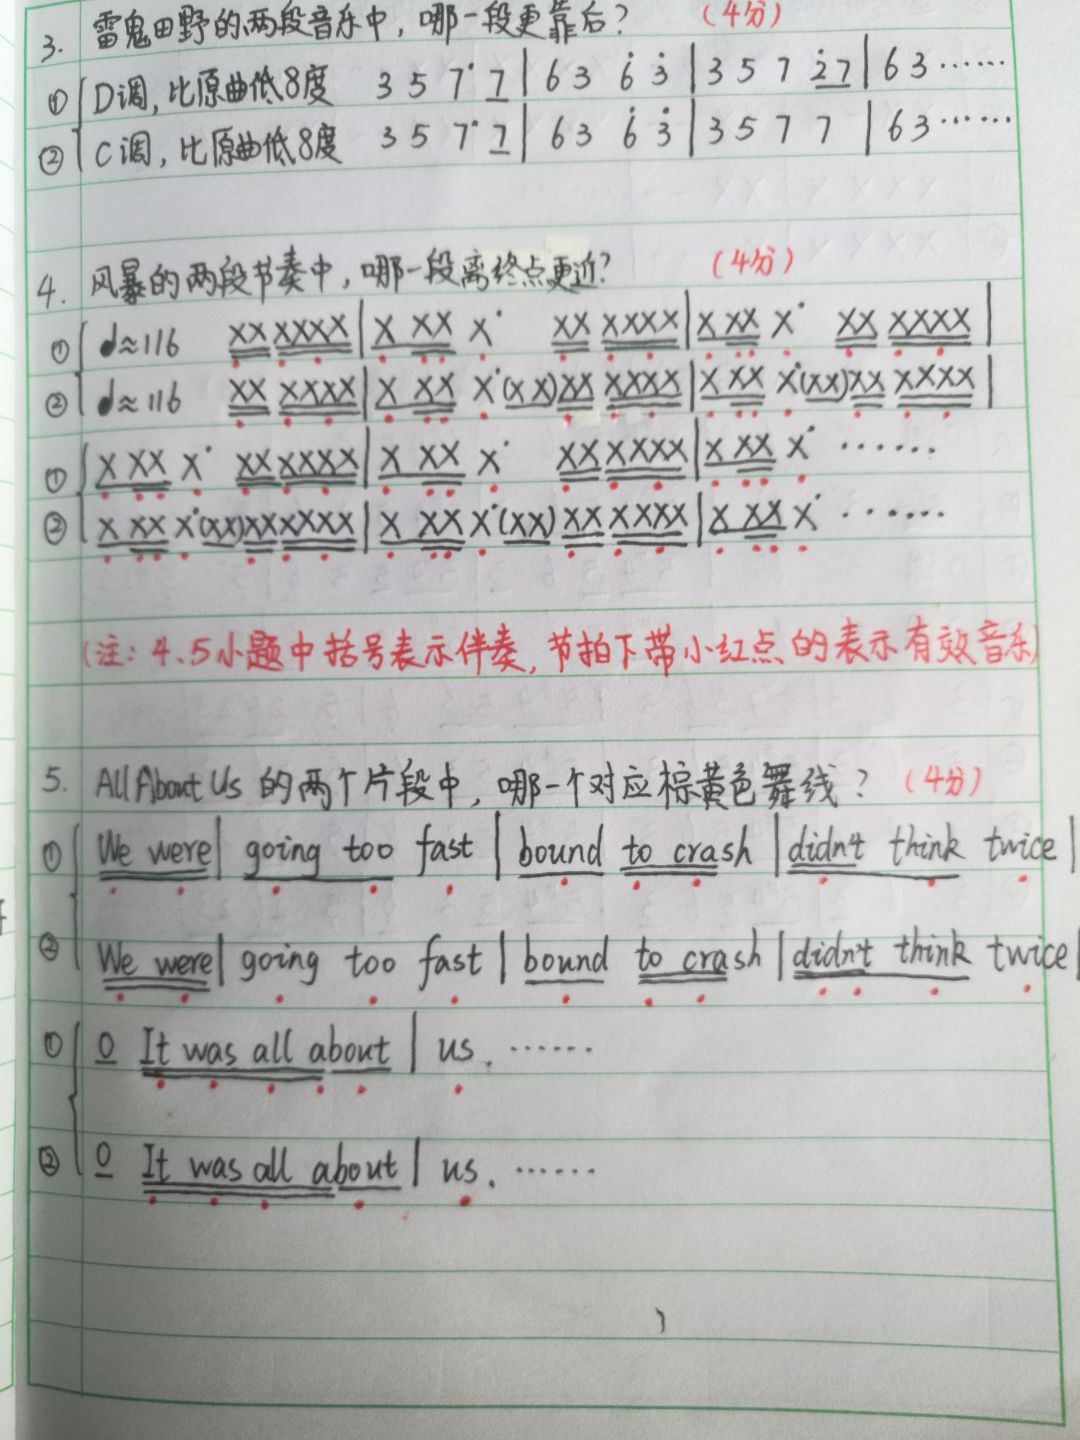 3. 雷鬼田野的两段音乐中，哪一段更靠后？ （4分）
① D调，比原曲低8度 3 5 7· 7 | 6 3 6̇ 3̇ | 3 5 7 2̇ 7 | 6 3 ……
② C调，比原曲低8度 3 5 7· 7 | 6 3 6̇ 3̇ | 3 5 7 7 | 6 3 ……
4. 风暴的两段节奏中，哪一段离终点更近？ （4分）
① ♩≈116 XX XXXX | X XX X· XX XXXX | X XX X· XX XXXX |
② ♩≈116 XX XXXX | X XX X· (XX) XX XXXX | X XX X· (XX) XX XXXX |
① X XX X· XX XXXX | X XX X· XX XXXX | X XX X· ……
② X XX X· (XX) XX XXXX | X XX X· (XX) XX XXXX | X XX X· ……
（注：4.5小题中括号表示伴奏，节拍下带小红点的表示有效音乐）
5. All About Us 的两个片段中，哪一个对应棕黄色舞线？（4分）
① We were | going too fast | bound to crash | didn't think twice |
② We were | going too fast | bound to crash | didn't think twice |
① 0 It was all about | us. ……
② 0 It was all about | us. ……